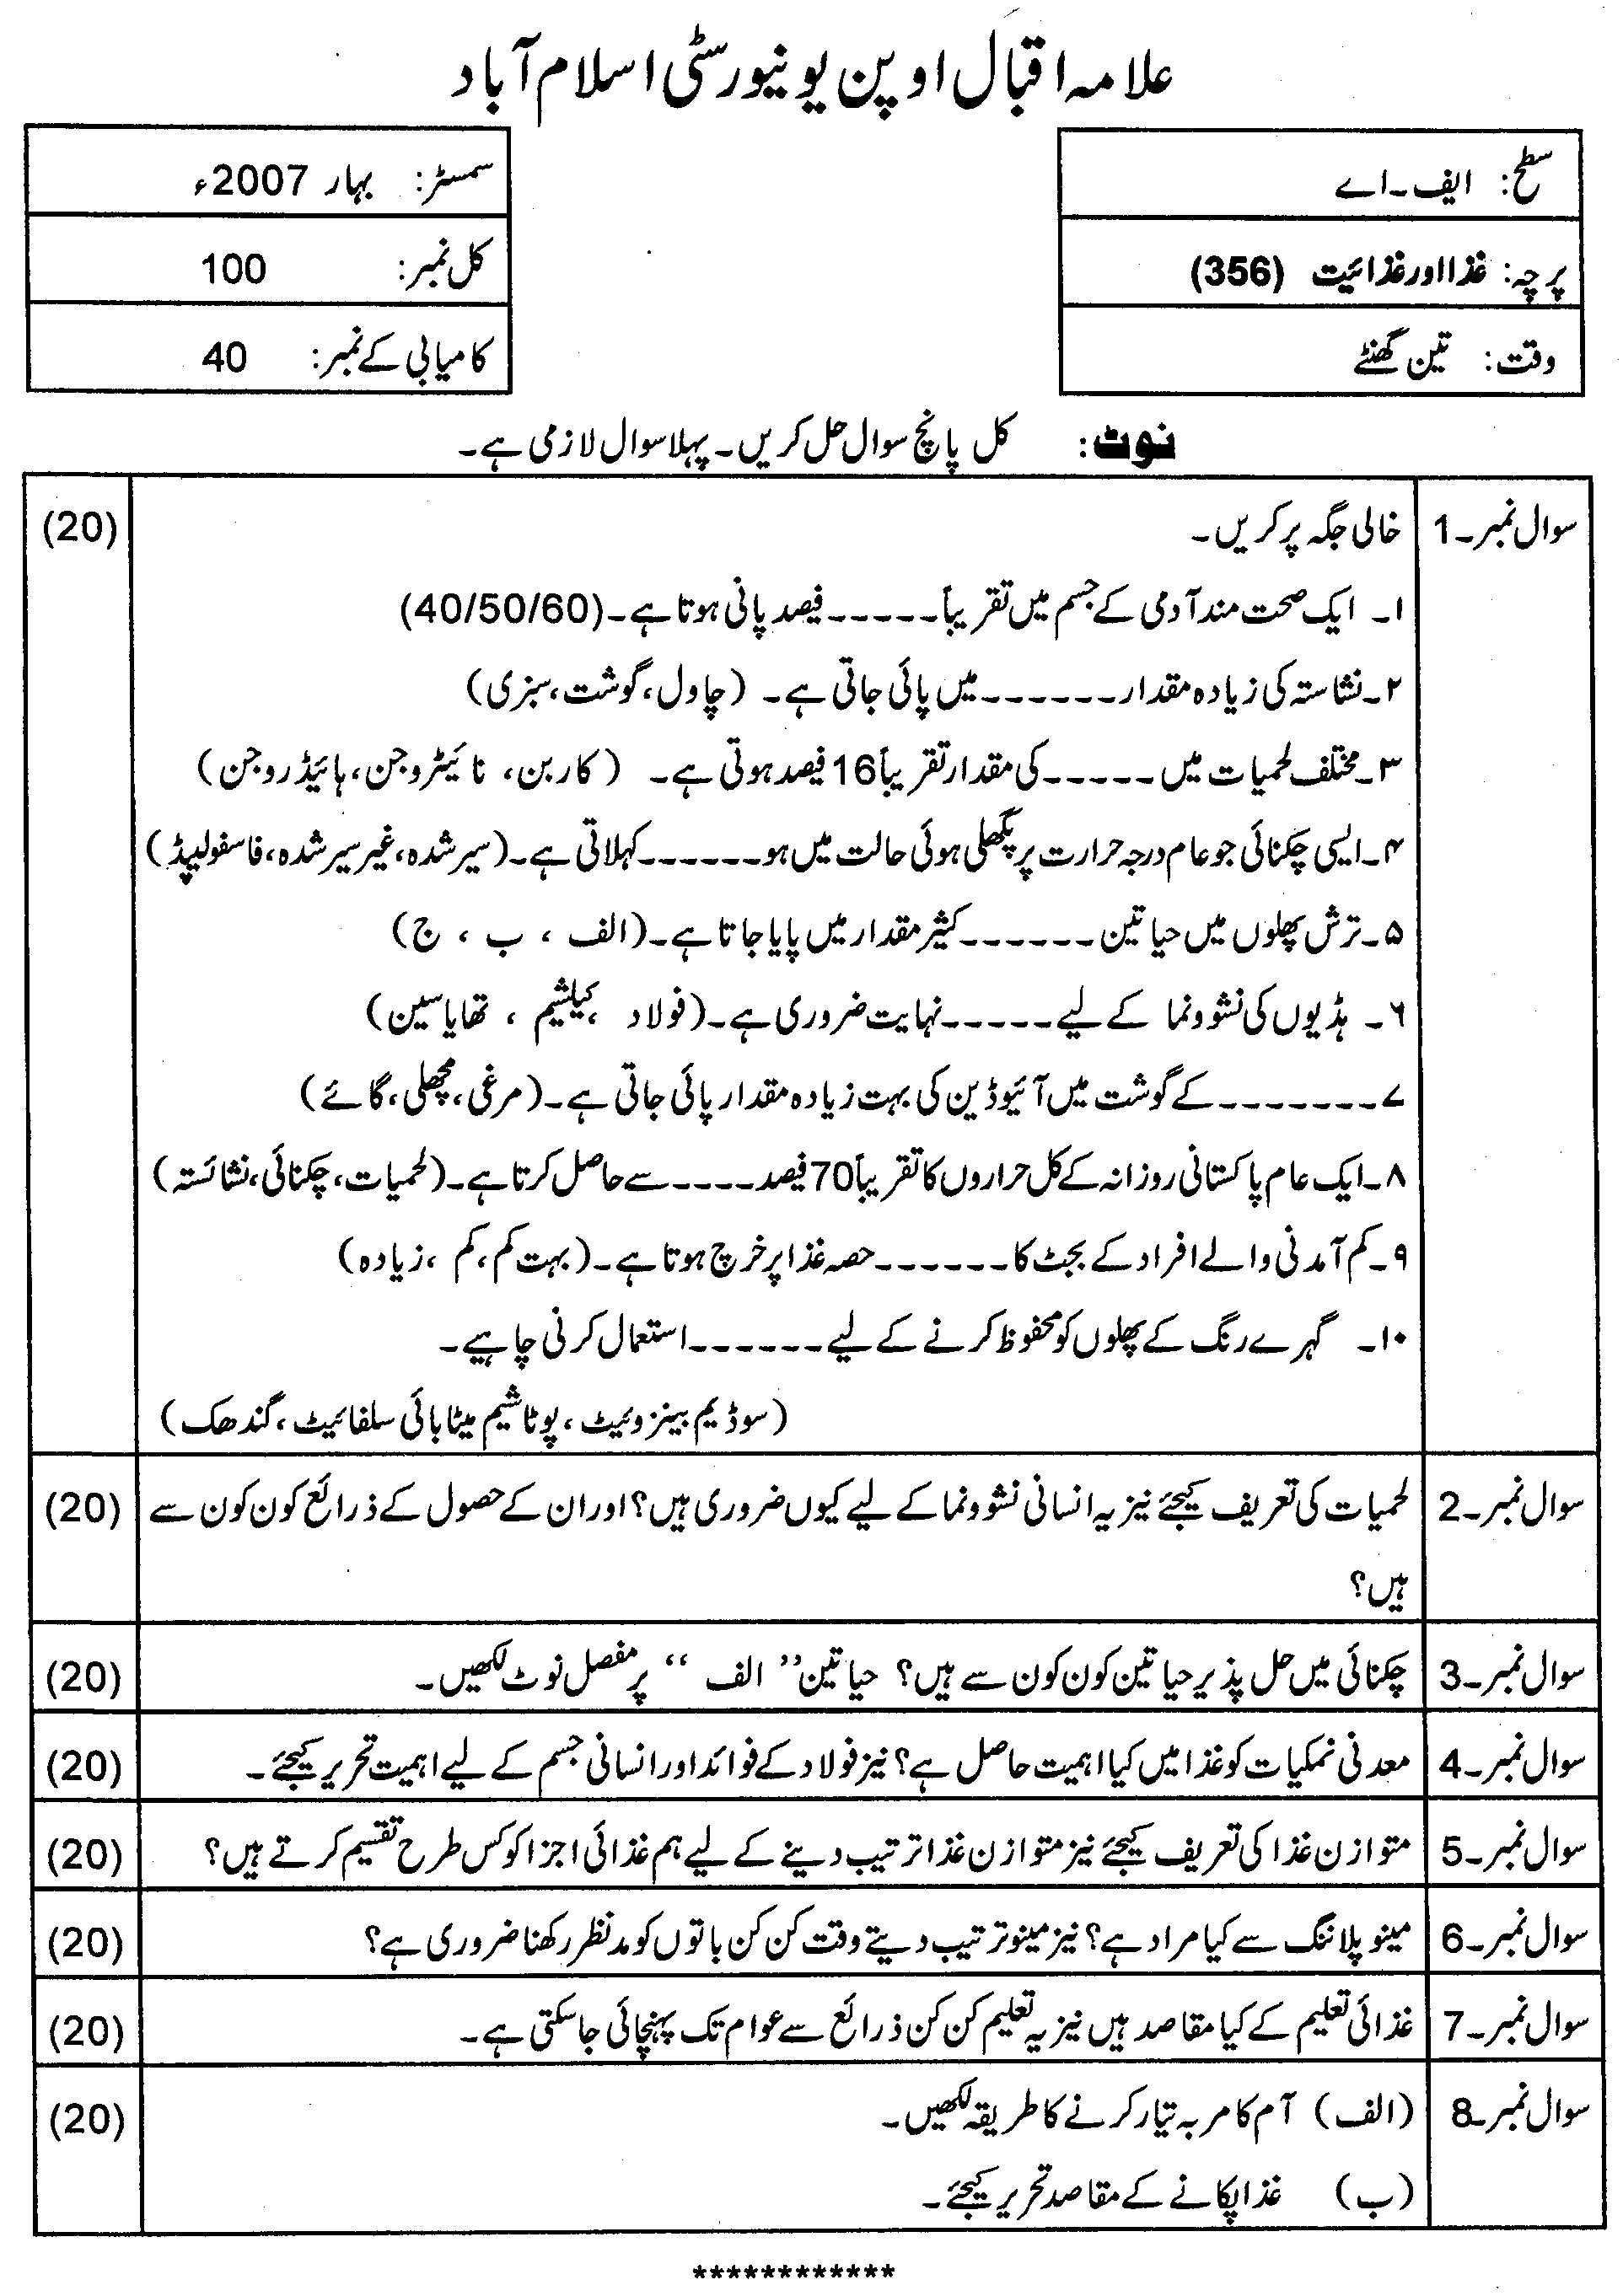 علامہ اقبال اوپن یونیورسٹی اسلام آباد
سطح: ایف۔اے
سمسٹر: بہار 2007ء
پرچہ: غذا اور غذائیت (356)
کل نمبر: 100
وقت: تین گھنٹے
کامیابی کے نمبر: 40
نوٹ: کل پانچ سوال حل کریں۔ پہلا سوال لازمی ہے۔
سوال نمبر۔1 خالی جگہ پر کریں۔ (20)
۱۔ ایک صحت مند آدمی کے جسم میں تقریباً۔۔۔۔۔ فیصد پانی ہوتا ہے۔(40/50/60)
۲۔نشاستہ کی زیادہ مقدار۔۔۔۔۔۔میں پائی جاتی ہے۔ (چاول، گوشت، سبزی)
۳۔مختلف لحمیات میں ۔۔۔۔۔کی مقدار تقریباً16 فیصد ہوتی ہے۔ (کاربن، نائیٹروجن، ہائیڈروجن)
۴۔ایسی چکنائی جو عام درجہ حرارت پر پگھلی ہوئی حالت میں ہو۔۔۔۔۔۔کہلاتی ہے۔(سیر شدہ، غیر سیر شدہ، فاسفولیپڈ)
۵۔ترش پھلوں میں حیاتین ۔۔۔۔۔۔کثیر مقدار میں پایا جاتا ہے۔(الف ، ب ، ج)
۶۔ ہڈیوں کی نشوونما کے لیے ۔۔۔۔۔نہایت ضروری ہے۔(فولاد ،کیلشیم ، تھایاسین)
۷۔۔۔۔۔۔۔کے گوشت میں آئیوڈین کی بہت زیادہ مقدار پائی جاتی ہے۔(مرغی، مچھلی، گائے)
۸۔ایک عام پاکستانی روزانہ کے کل حراروں کا تقریباً70 فیصد۔۔۔۔سے حاصل کرتا ہے۔(لحمیات، چکنائی، نشائستہ)
۹۔کم آمدنی والے افراد کے بجٹ کا۔۔۔۔۔۔حصہ غذا پر خرچ ہوتا ہے۔(بہت کم، کم ، زیادہ)
۱۰۔ گہرے رنگ کے پھلوں کو محفوظ کرنے کے لیے ۔۔۔۔۔۔استعمال کرنی چاہیے۔
(سوڈیم بینزوئیٹ، پوٹاشیم میٹابائی سلفائیٹ، گندھک)
سوال نمبر۔2 لحمیات کی تعریف کیجئے نیز یہ انسانی نشوونما کے لیے کیوں ضروری ہیں؟ اور ان کے حصول کے ذرائع کون کون سے (20)
ہیں؟
سوال نمبر۔3 چکنائی میں حل پذیر حیاتین کون کون سے ہیں؟ حیاتین ’’الف‘‘ پر مفصل نوٹ لکھیں۔ (20)
سوال نمبر۔4 معدنی نمکیات کو غذا میں کیا اہمیت حاصل ہے؟ نیز فولاد کے فوائد اور انسانی جسم کے لیے اہمیت تحریر کیجئے۔ (20)
سوال نمبر۔5 متوازن غذا کی تعریف کیجئے نیز متوازن غذا ترتیب دینے کے لیے ہم غذائی اجزا کو کس طرح تقسیم کرتے ہیں؟ (20)
سوال نمبر۔6 مینو پلاننگ سے کیا مراد ہے؟ نیز مینو ترتیب دیتے وقت کن کن باتوں کو مدنظر رکھنا ضروری ہے؟ (20)
سوال نمبر۔7 غذائی تعلیم کے کیا مقاصد ہیں نیز یہ تعلیم کن کن ذرائع سے عوام تک پہنچائی جاسکتی ہے۔ (20)
سوال نمبر۔8 (الف) آم کا مربہ تیار کرنے کا طریقہ لکھیں۔ (20)
(ب) غذا پکانے کے مقاصد تحریر کیجئے۔
************